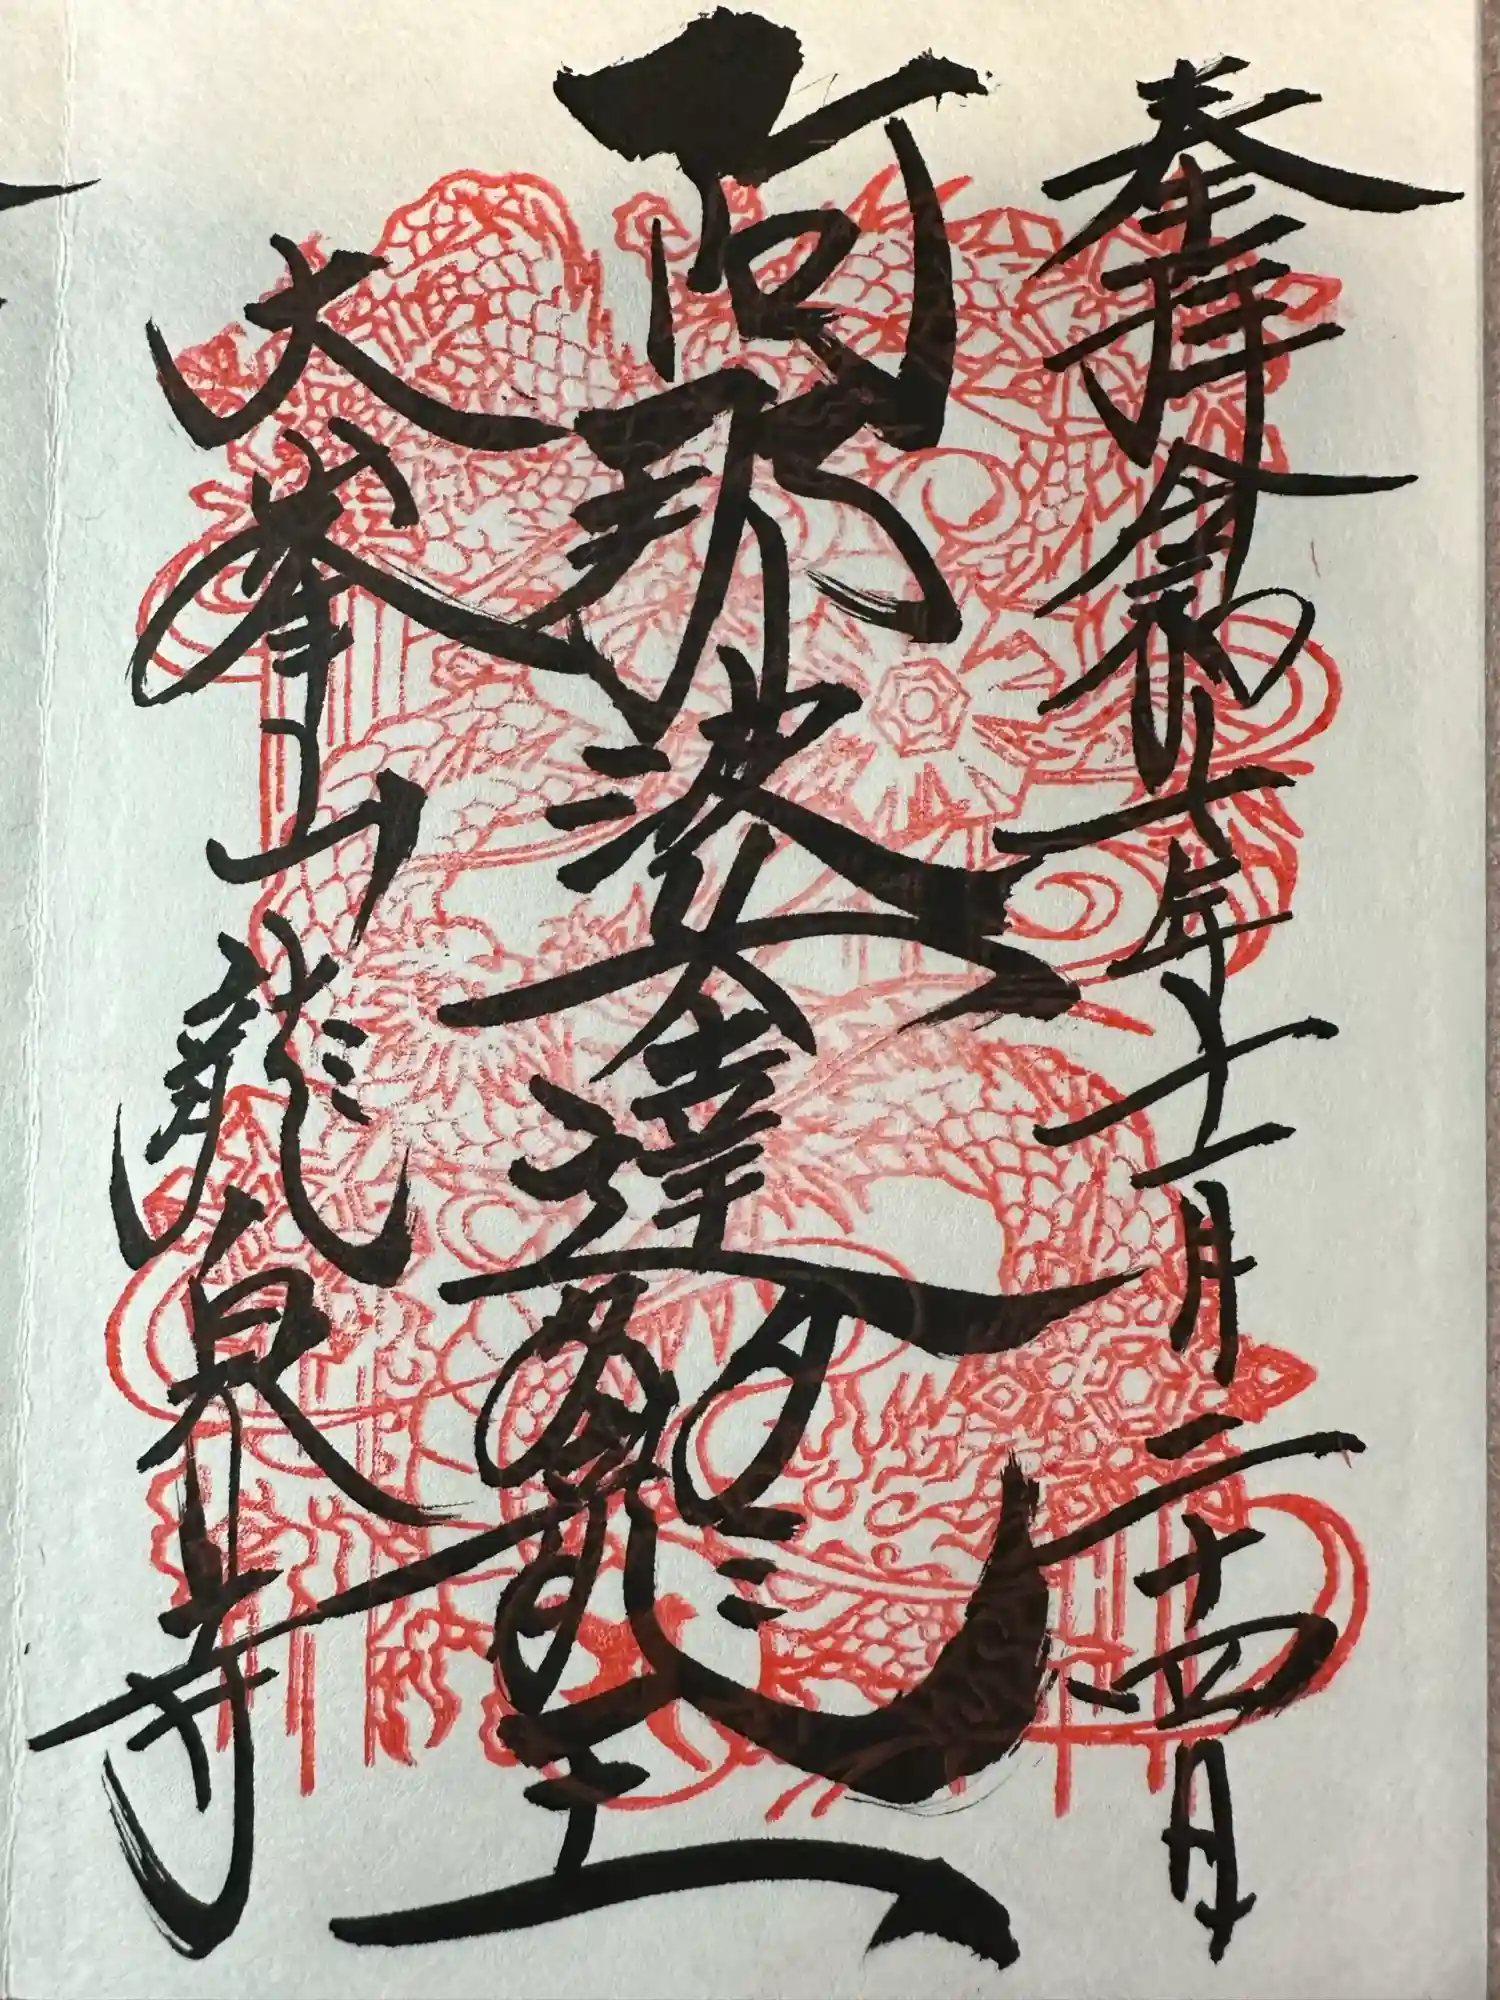 奉拝 令和七年十一月二十四日
阿那婆達多龍王
大峯山龍泉寺